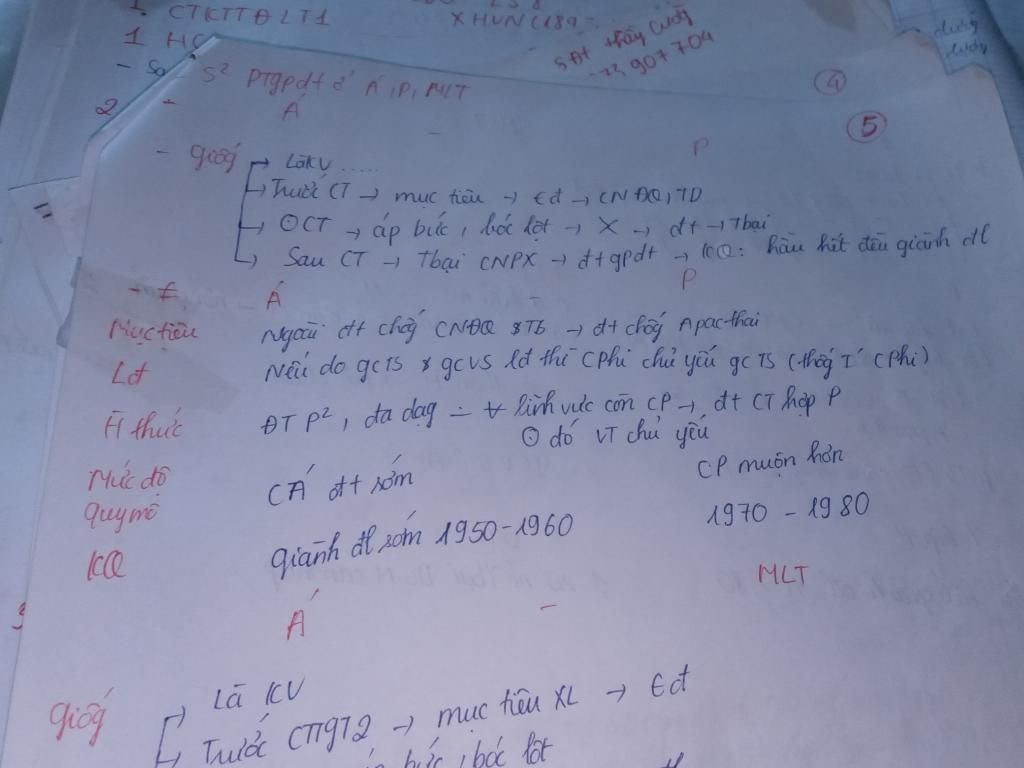 1. CTKTTĐLT1
XHVNC189
1 HC
SĐT thầy Cườg
907 704
dưng
- So
S² PTgpdt ở Á, P, MLT
④
2 -
Á - P
⑤
- Giốg → Là KV .....
→ Trước CT → mục tiêu → €đ → CNĐQ, TD
→ ʘCT → áp bức, bóc lột → X → đt → Tbại
→ Sau CT → Tbại CNPX → đt gpdt → KQ: hầu hết đều giành đl
- ≠ Á - P
Mục tiêu Ngoài đt chốg CNĐQ & TD → đt chốg Apacthai
Lđ Nếu do gcTS & gcVS lđ thì CPhi chủ yếu gcTS (thốg I´ CPhi)
H thức ĐT P², đa dạg ÷ ∀ lĩnh vực còn CP → đt CT hợp P
ʘ đó VT chủ yếu
Mức độ CÁ đt sớm CP muộn hơn
quy mô
KQ Giành đl sớm 1950-1960 1970 - 1980
Á - MLT
Giốg → Là KV
→ Trước CTTGT2 → mục tiêu XL → €đ
bức, bóc lột